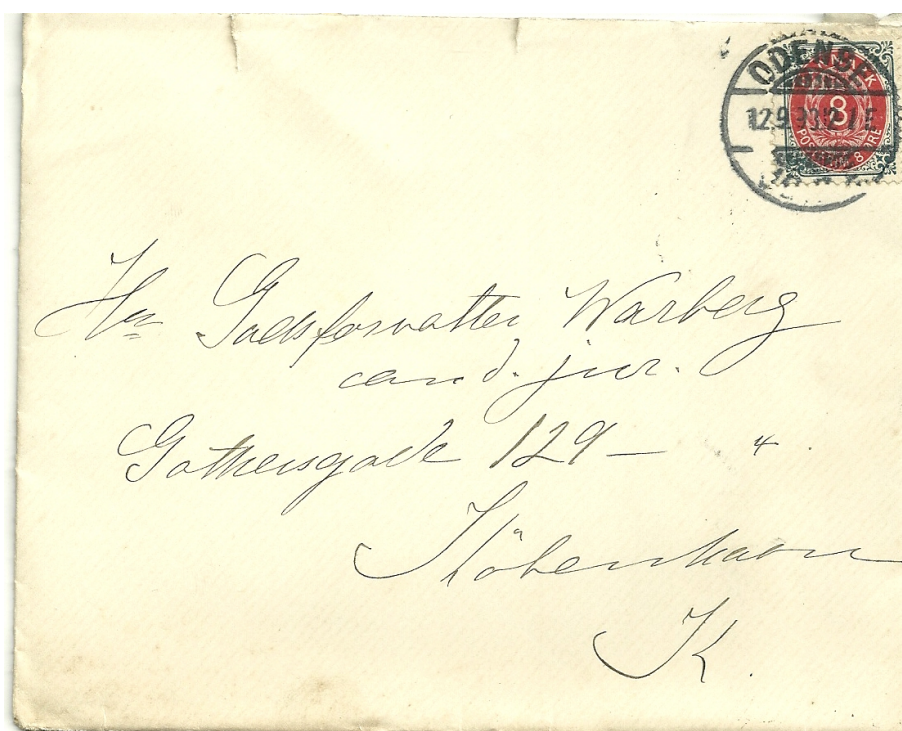 ODENSE
12.9.93. 2-1 E
DANMARK
8
POSTFRIM 8 ØRE
Hr Godsforvalter Warberg
cand. jur.
Gothersgade 129 – 4
Köbenhavn
K.